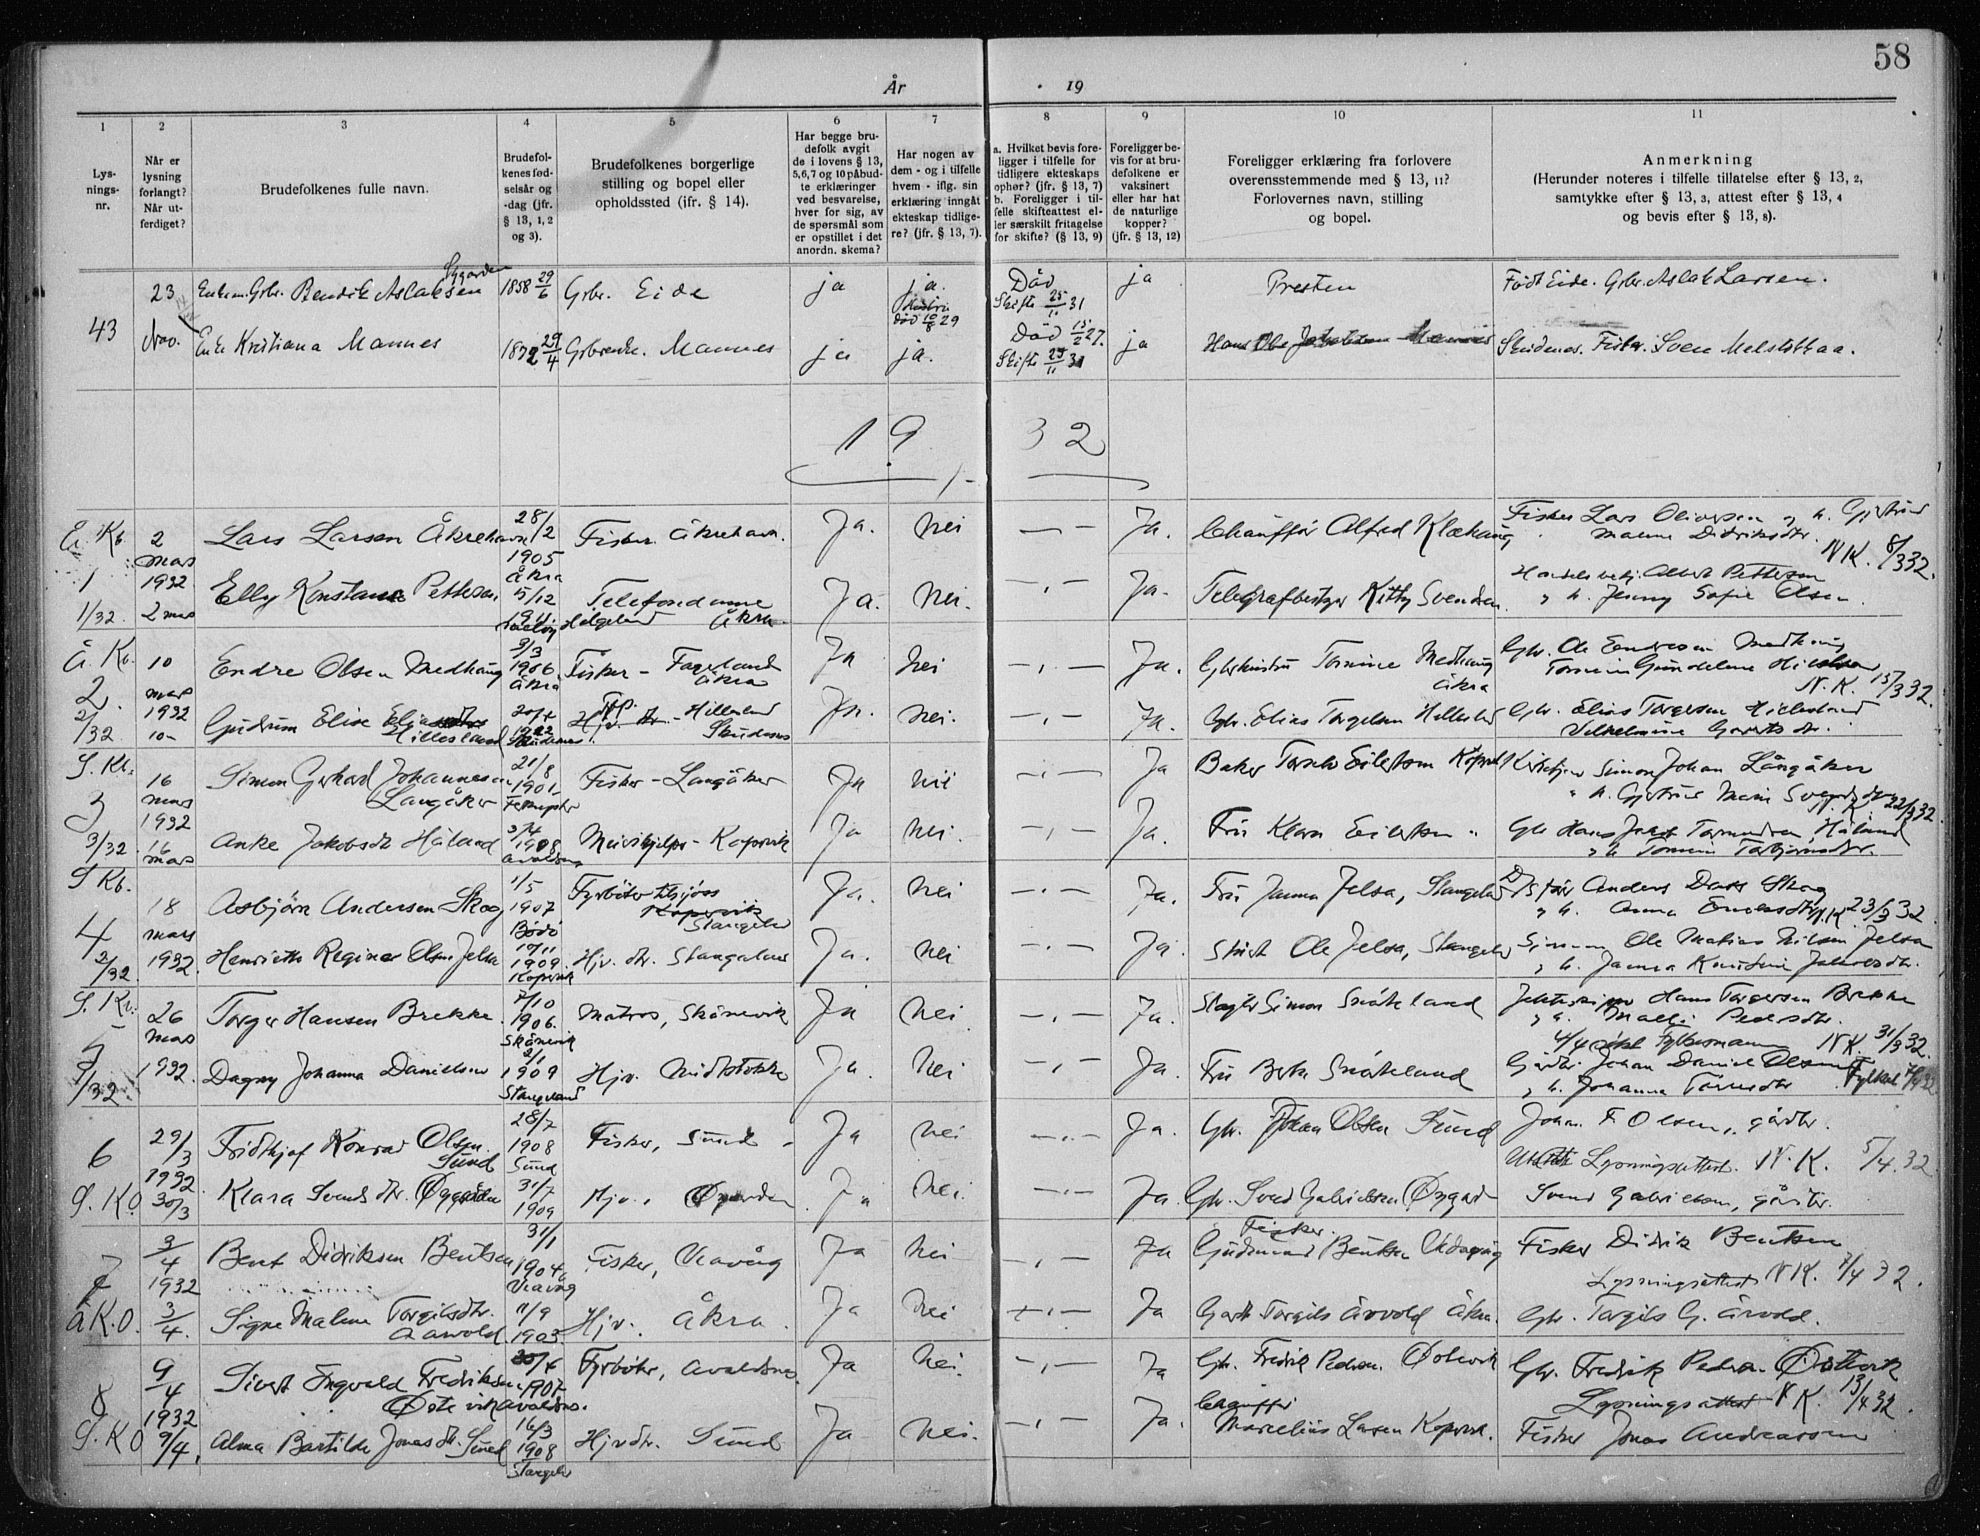 58
År
19
1
2
3
4
5
6
7
8
9
10
11
Lys-
nings-
nr.
Når er
lysning
forlangt?
Når ut-
ferdiget?
Brudefolkenes fulle navn.
Brudefol-
kenes fød-
selsår og
-dag (jfr.
§ 13, 1, 2
og 3).
Brudefolkenes borgerlige
stilling og bopel eller
opholdssted (ifr. § 14).
Har begge bru-
defolk avgit
de i lovens § 13,
5,6,7 og 10 påbud-
te erklæringer
ved besvarelse,
hver for sig, av
de spørsmål som
er opstillet i det
anordn. skema?
Har nogen av
dem - og i tilfelle
hvem - iflg. sin
erklæring inngått
ekteskap tidlige-
re? (jfr. § 13, 7).
a. Hvilket bevis fore-
ligger i tilfelle for
tidligere ekteskaps
ophør? (jfr. § 13, 7)
b. Foreligger i til-
felle skifteattest el-
ler særskilt fritagelse
for skifte? (§ 13, 9)
Foreligger be-
vis for at bru-
defolkene er
vaksinert
eller har hat
de naturlige
kopper?
(jfr. § 13, 12)
Foreligger erklæring fra forlovere
overensstemmende med § 13, 11?
Forlovernes navn, stilling
og bopel.
Anmerkning
(Herunder noteres i tilfelle tillatelse efter § 13, 2,
samtykke efter § 13, 3, attest efter § 13, 4
og bevis efter § 13, 8).
43
23
Nov.
Enkem. Gbr. Bendik Aslaksen Sygarden
1858 29/6
Gbr. Eide
ja
ja.
død 10/8 29
Død
Skifte 25/11 31
ja
Presten
Født Eide. Gbr. Aslak Larsen.
Enke Kristiana Mannes
29/4
Gbrenke. Mannes
ja
ja.
Død 15/2 27.
Skifte 25/11 31
ja
Skudenes. Fisker Sven
19 32
Å. Kb.
1
1/32
2
mars
1932
2 mars
Lars Larsen Åkrehavn
28/2
1905
Åkra
Fisker. Åkrehavn.
Ja.
Nei
Ja.
Chauffør Alfred Klæhaug
Fisker Lars Oliversen og h. Gjertrud
Malene Didriksdtr.
N.K. 8/3 32.
Elly Konstanse Pettersen
5/12
1911
Telefondame
Åkra
Ja.
Nei.
Ja.
Telegrafbestyer Kitty Svendsen
Albert Pettersen
" h. Jenny Sofie Olsen
Å. Kb.
2
2/32
10
mars
1932
10
Endre Olsen Medhaug
3/3
1906
Åkra
Fisker - Fageland
Åkra
Ja
Nei
Ja.
Gbrkustru Tomine Medhaug
Åkra
Gbr. Ole Endresen Medhaug
N.K. 15/3 32.
Gudrun Elise
Hillesland
Skudenes
Hillesland
Skudenes
Ja.
Nei.
Ja.
Gbr. Elias Torgersen Hillesland
Gbr. Elias Torgersen Hillesland
Vilhelmine
S. Kb.
3
3/32
16
mars
1932
16
mars
Simon Gerhard Johannesen
Langåker
21/8
1901
Fisker - Langåker
Ja
Nei
Ja
Baker Torsten Eilertsen Kopervik
Simon Johan Långåker
" h. Gjertrud Marie
22/3 32
Anke Jakobsdtr Håland
3/4
1908
Avaldsnes
Kopervik
Ja
Nei.
Ja.
Fru Klara Eilertsen "
Gbr Hans Jakob Håland
" h. Tomine Torbjørnsdtr.
S Kb.
4
18
mars
1932
Asbjørn Andersen Skog
1/5
1907
Bødø
Fyrbøter
Kopervik
Stangeland
Ja.
Nei
Ja.
Fru Janna Jelsa, Stangeland
Anders Skog
23/3 32.
Henriette Regine Olsen Jelsa
10/11
1909.
Kopervik
Hjv. dtr. Stangeland
Ja.
Nei
Ja.
Ole Jelsa, Stangeland
Ole Matias Nilsen Jelsa
" h. Janna
S. Kb.
5
5/32
26
mars
1932.
Torger Hansen Brekke.
7/10
1906.
Skånevik
Matros, Skånevik
Ja
Nei
Ja.
Simon Snørteland
Hans Torgersen Brekke
" h. Malli Pedersdtr.
4/4 Fylkesmannen N.K. 31/3 32.
Dagny Johanna Danielsen
2/1
1909
Stangeland
Hjv. Midtstokke
Ja.
Nei
Ja.
Johan Daniel Olsen
" h. Johanna
6
S. K.O.
29/3
1932
30/3
Fridthjof Konrad Olsen
Sund
28/7
1908
Sund
Fisker, Sund
Ja
Nei
Ja.
Gbr. Johan Olsen Sund
Johan F Olsen, gårdbr.
Lysningsattest. N.K. 5/4 32.
Klara Svendsdtr. Øygarden
31/7
1909
Hjv., Øygarden
Ja
Nei.
Ja
Gbr. Svend Gabrielsen Øygard
Svend Gabrielsen, gårdbr.
7
Å K.O.
3/4
1932
3/4.
Bent Didriksen Bentsen
31/1
1904
Veavåg
Fisker, Veavåg
Ja
Nei
Ja
Fisker.
Gudmund Bentsen Vedavåg
Fisker Didrik Bentsen
Lysningsattest N.K. 7/4 32.
Signe Malene Torgilsdtr.
Aarvold
11/9
1903
Hjv. Åkra.
Ja
Nei
Ja
Torgils Årvold Åkra.
Gbr. Torgils G. Årvold.
8
S. K O
9/4
1932
9/4.
Sivert Ingvald Fredriksen
Østevik
1907
Avaldsnes.
Fyrbøter, Avaldsnes.
Ja
Nei.
Ja
Gbr. Fredrik Pedersen. Østevik
Gbr. Fredrik Pedersen Østevik
Lysningsattest N.K. 13/4 32.
Alma Bartilde Jonasdtr. Sund
16/3
1908
Stangeland
Hjvdtr. Sund
Ja
Nei.
Ja.
Chauffør
Marcelius Larsen Kopervik.
Fisker Jonas Andreassen